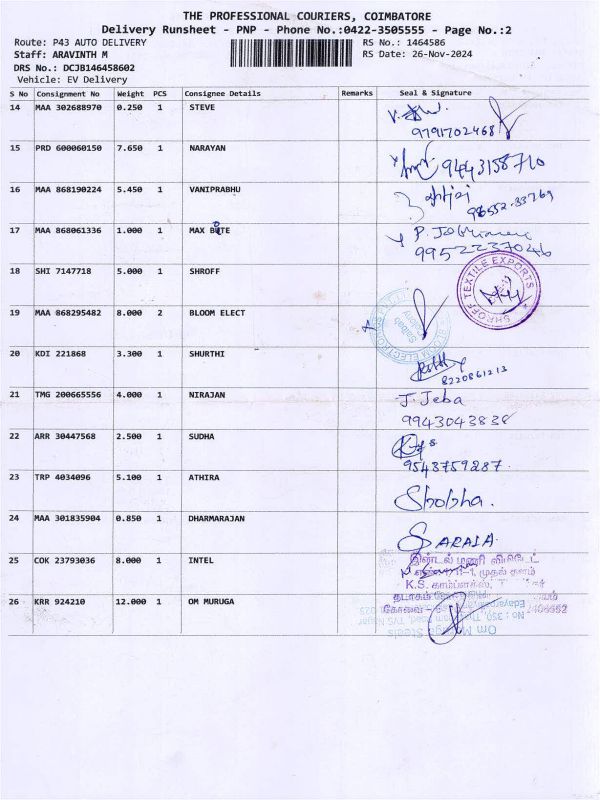 THE PROFESSIONAL COURIERS, COIMBATORE
Delivery Runsheet - PNP - Phone No.:0422-3505555 - Page No.:2
Route: P43 AUTO DELIVERY RS No.: 1464586
Staff: ARAVINTH M RS Date: 26-Nov-2024
DRS No.: DCJB146458602
Vehicle: EV Delivery
S No Consignment No Weight PCS Consignee Details Remarks Seal & Signature
14 MAA 302688970 0.250 1 STEVE
9791702468
15 PRD 600060150 7.650 1 NARAYAN
9443158710
16 MAA 868190224 5.450 1 VANIPRABHU
17 MAA 868061336 1.000 1 MAX BITE
9952237046
18 SHI 7147718 5.000 1 SHROFF
SHROFF TEXTILE EXPORTS
19 MAA 868295482 8.000 2 BLOOM ELECT
BLOOM ELECTRONICS
20 KDI 221868 3.300 1 SHURTHI
8220861213
21 TMG 200665556 4.000 1 NIRAJAN J. Jeba
9943043838
22 ARR 30447568 2.500 1 SUDHA
9543759287
23 TRP 4034096 5.100 1 ATHIRA
Shobha.
24 MAA 301835904 0.850 1 DHARMARAJAN
SARAJA
25 COK 23793036 8.000 1 INTEL
முதல் தளம்
K.S. காம்ப்ளக்ஸ்,
26 KRR 924210 12.000 1 OM MURUGA